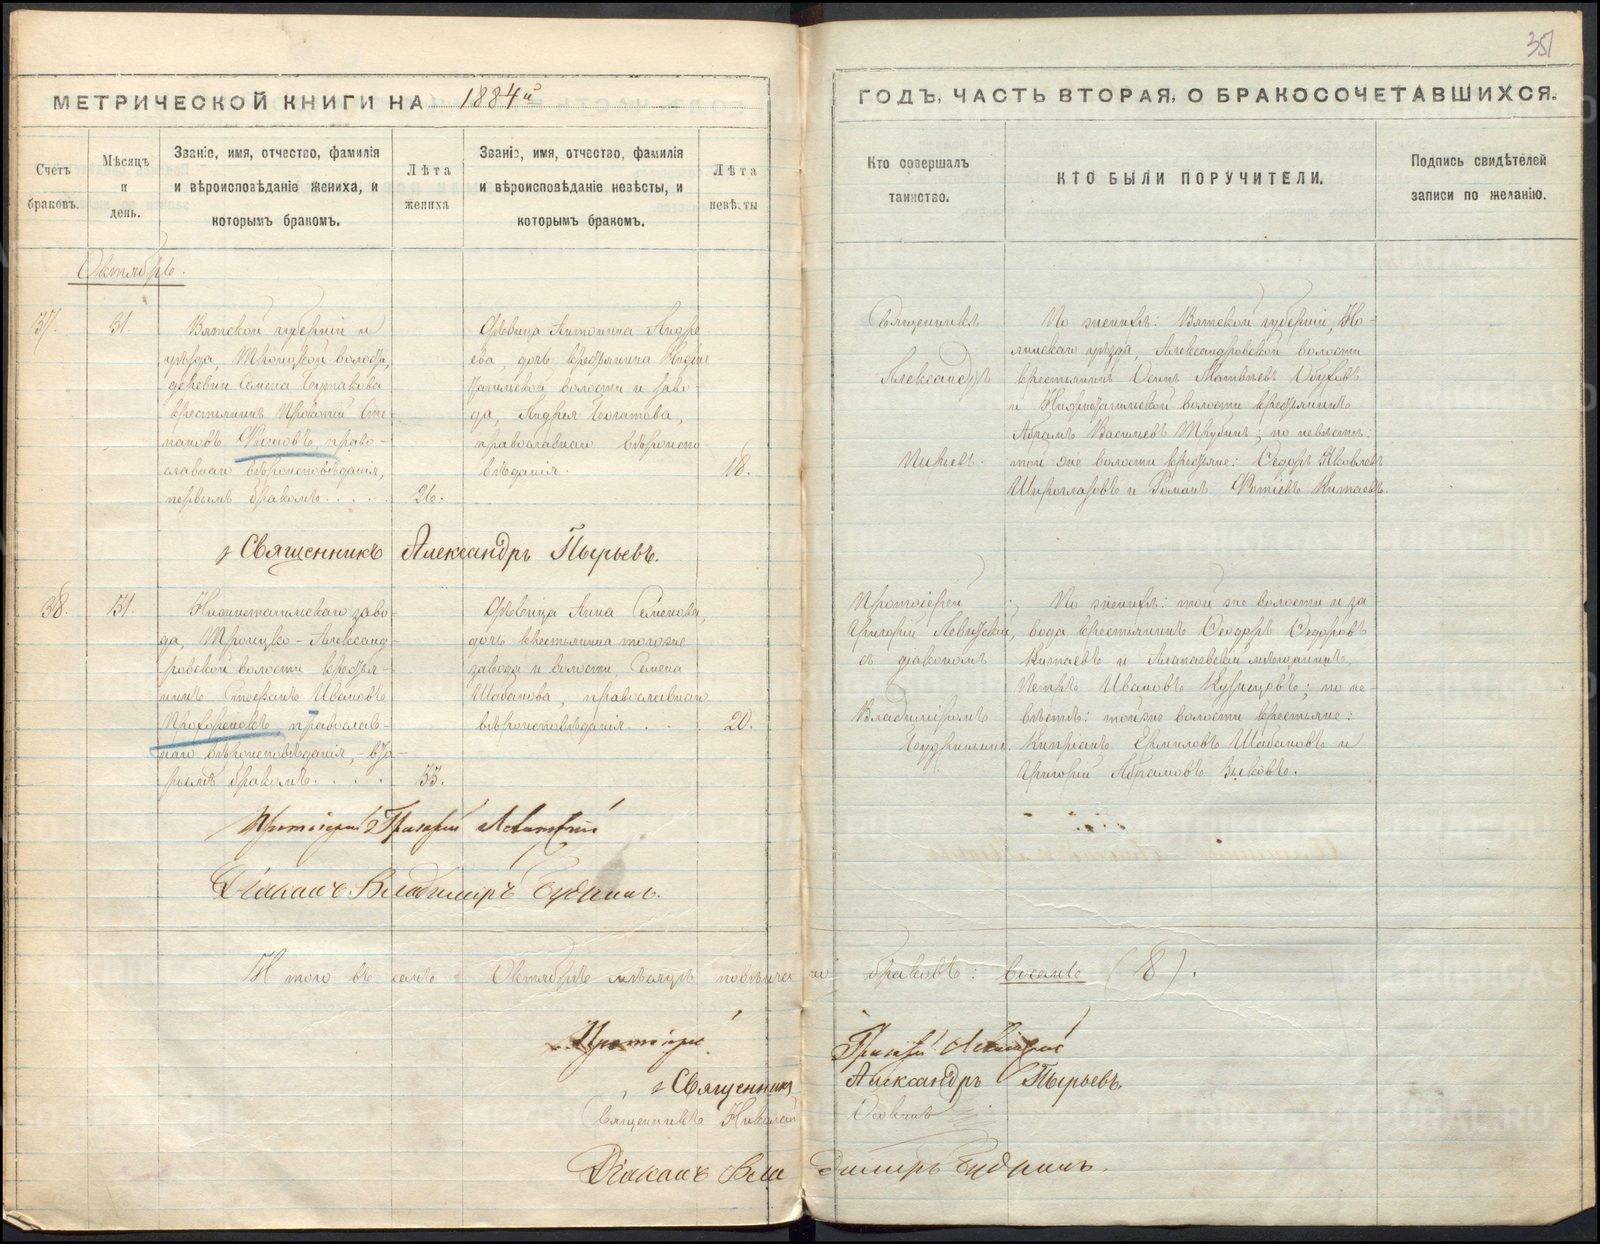 351
МЕТРИЧЕСКОЙ КНИГИ НА 1884й
ГОДЪ, ЧАСТЬ ВТОРАЯ, О БРАКОСОЧЕТАВШИХСЯ.
Счетъ
браковъ.
Мѣсяцъ
и
день.
Званіе, имя, отчество, фамилія
и вѣроисповѣданіе жениха, и
которымъ бракомъ.
Лѣта
жениха
Званіе, имя, отчество, фамилія
и вѣроисповѣданіе невѣсты, и
которымъ бракомъ.
Лѣта
невѣсты
Кто совершалъ
таинство.
КТО БЫЛИ ПОРУЧИТЕЛИ.
Подпись свидѣтелей
записи по желанію.
Октябрь.
37.
31.
Вятской губерніи и
уѣзда, Троицкой волости,
деревни Семена
крестьянинъ Прокопій Сте-
пановъ право-
славнаго вѣроисповѣданія,
первымъ бракомъ. . . .
26.
Дѣвица Антонина Андре
ева, дочь крестьянина Нижне
тагильской волости и заво-
да, Андрея
православнаго вѣроиспо
вѣданія.
18.
Священникъ
Александръ
По женихѣ: Вятской губерніи, Но-
линскаго уѣзда, Александровской волости
крестьянинъ Осипъ Матвѣевъ
и Нижнетагильской волости крестьянинъ
Абрамъ Васильевъ по невѣстѣ:
той же волости крестьяне: Федоръ Яковлевъ
и Романъ Фотіевъ Китаевъ.
Священникъ Александръ Пырьевъ.
38.
31.
Нижнетагильскаго заво-
да, Троицко-Александ-
ровской волости крестья-
нинъ Стефанъ Ивановъ
православ-
наго вѣроисповѣданія, вто-
рымъ бракомъ. . . .
33.
Дѣвица Анна Семенова,
дочь крестьянина тогоже
завода и волости, Семена
Шабанова, православнаго
вѣроисповѣданія . .
20.
Протоіерей
Григорій Левитскій,
съ діакономъ
Владиміромъ
По женихѣ: той же волости и за
вода крестьянинъ Федоръ Федоровъ
Китаевъ и Алапаевскій мѣщанинъ,
Петръ Ивановъ Кузнецовъ; по не-
вѣстѣ: тойже волости крестьяне:
Кипріанъ Ермиловъ Шабановъ и
Григорій Абрамовъ Зыковъ.
Протоіерей Григорій Левитскій
Діаконъ Владимиръ
Итого въ семъ Октябрѣ мѣсяцѣ повѣнчано браковъ: восемь (8).
Протоіерей Григорій Левитскій
Священникъ Александръ Пырьевъ
Священникъ Николай
Діаконъ Владимиръ